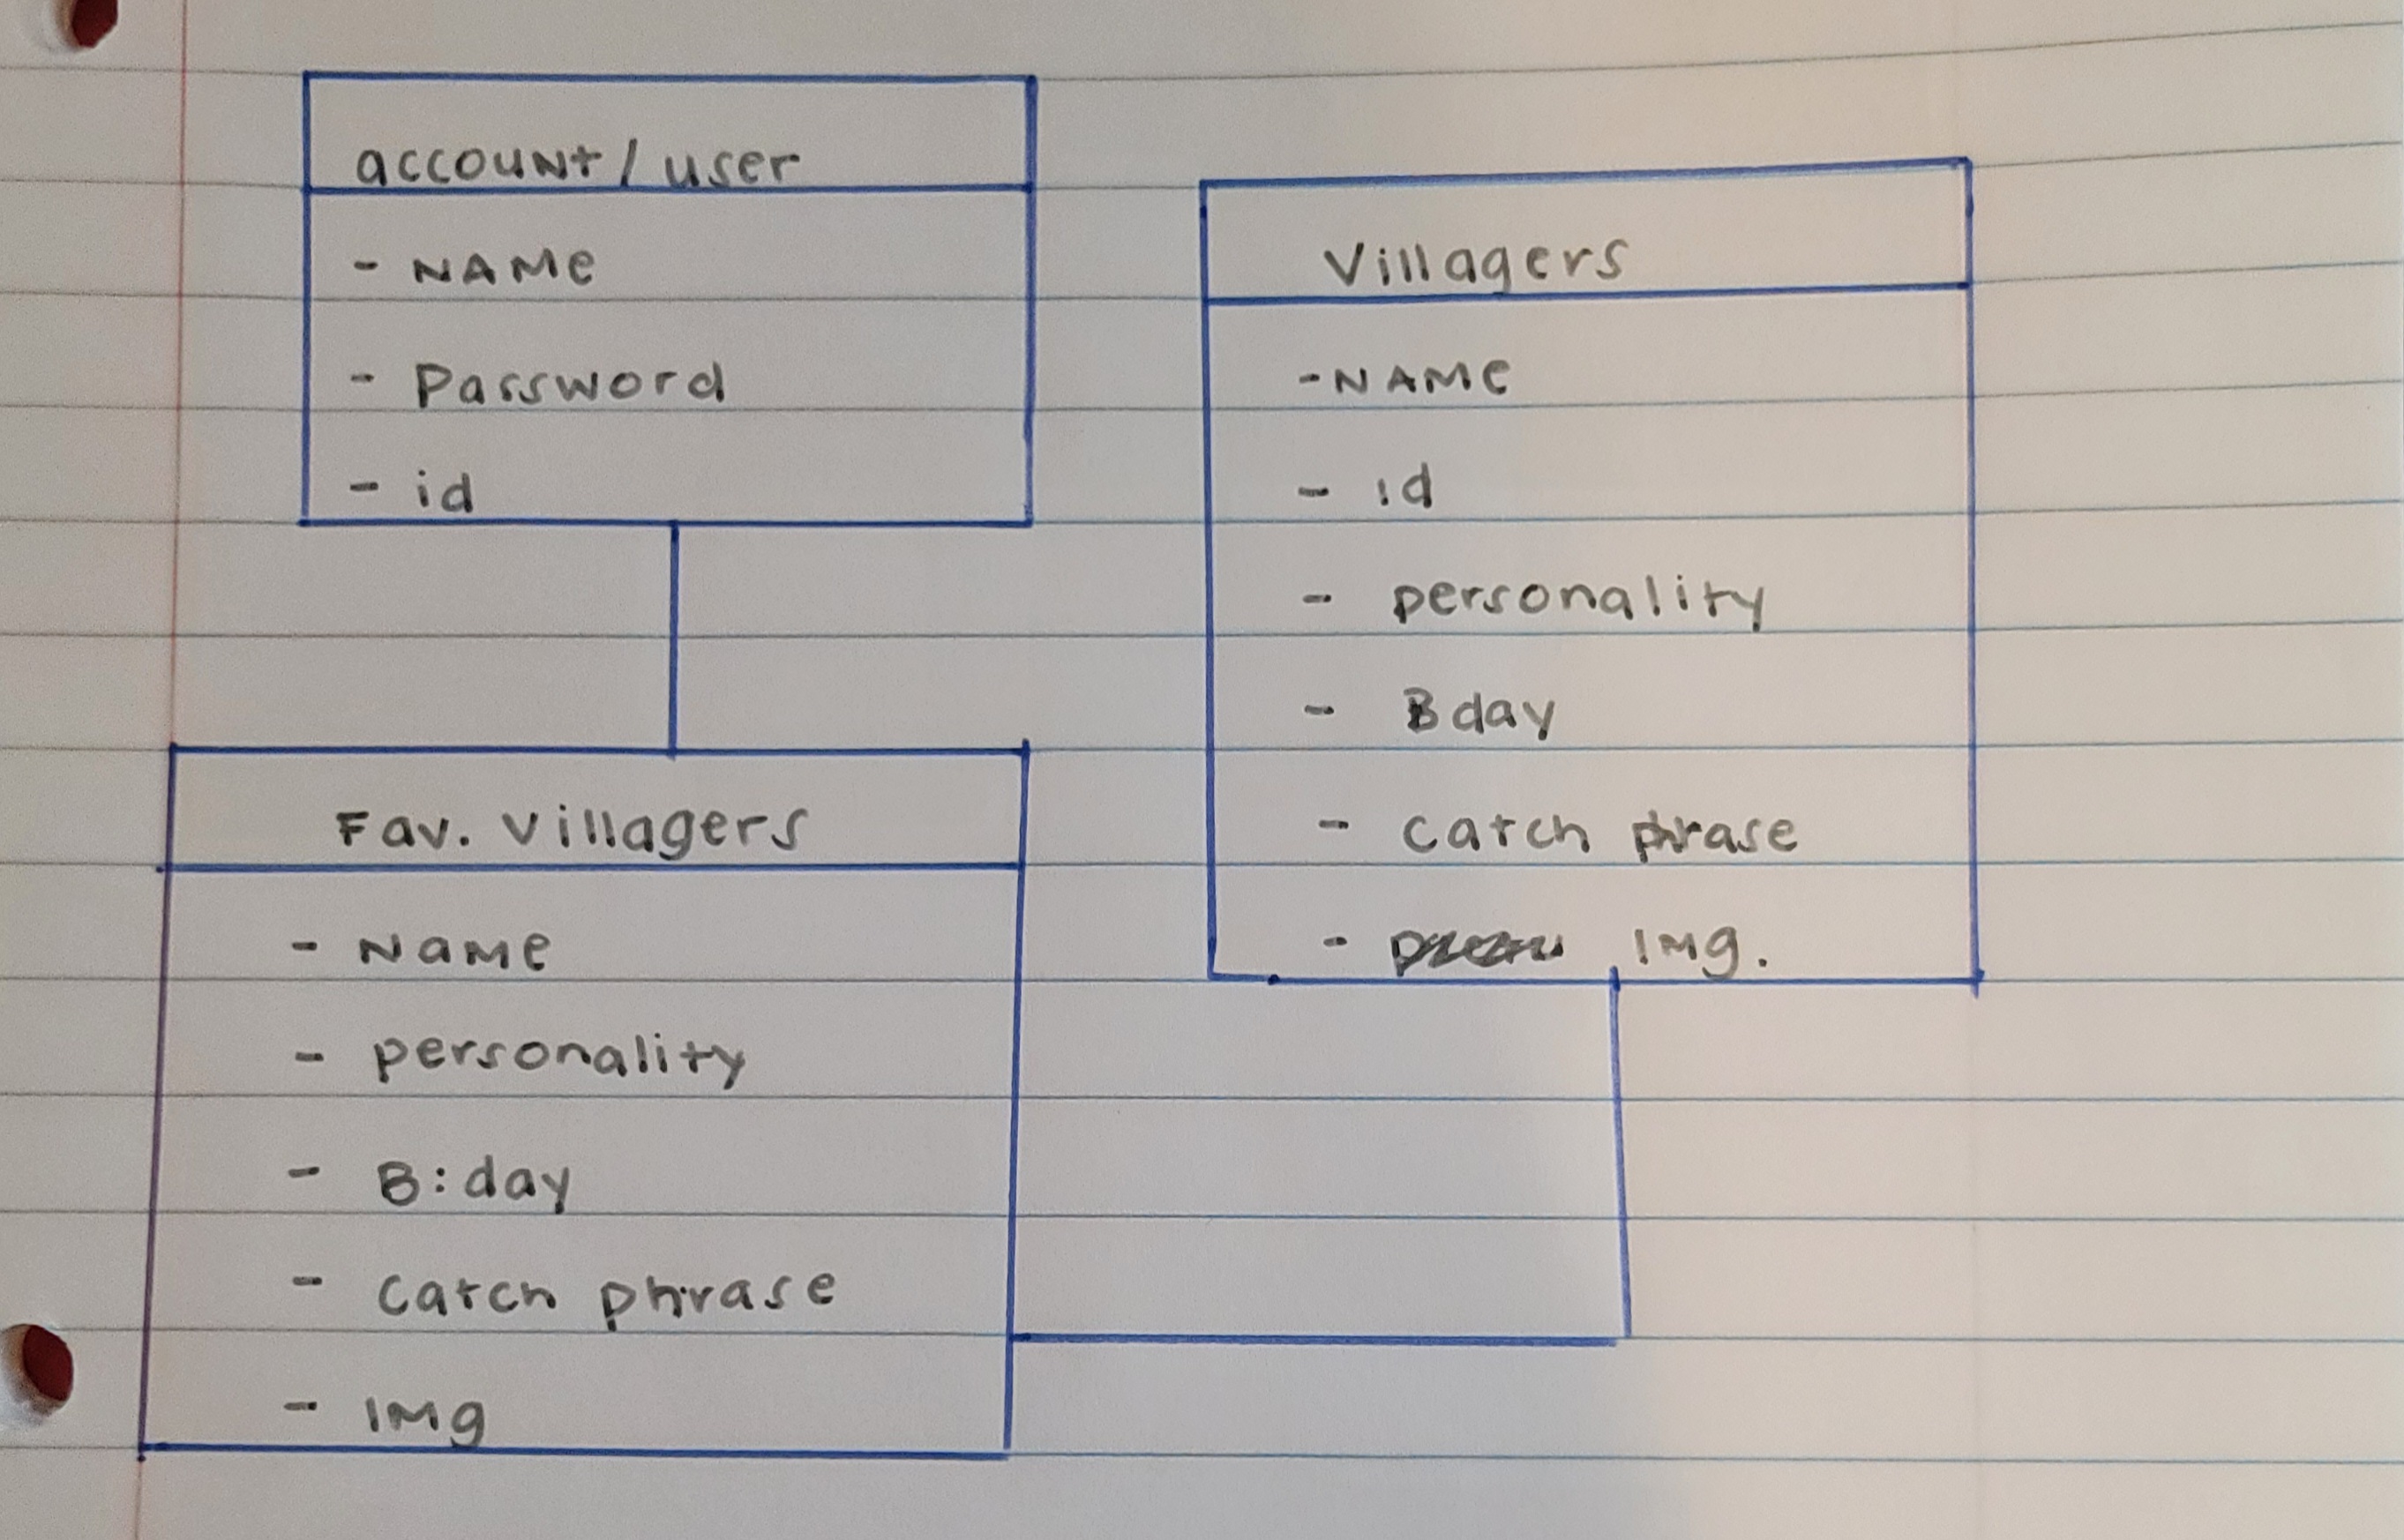 account / user
- NAME
- Password
- id
Villagers
- NAME
- id
- personality
- Bday
- Catch phrase
- Img.
Fav. Villagers
- Name
- personality
- B:day
- Catch phrase
- Img